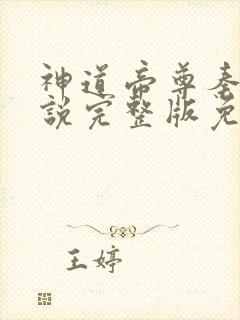 神道帝尊秦
說完整版免
王婷